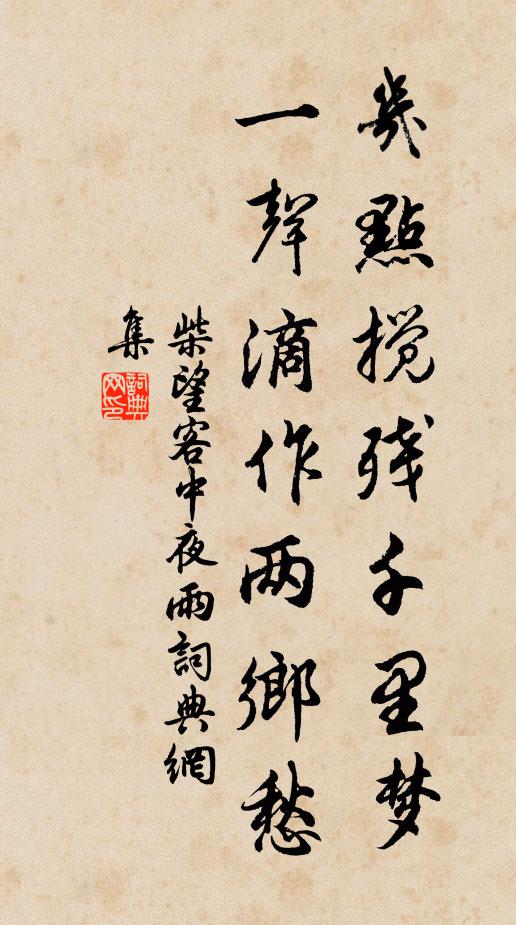 幾點攪残千里梦
一聲滴作两鄉愁
柴望客中夜雨詞典網
集
詞典
网印